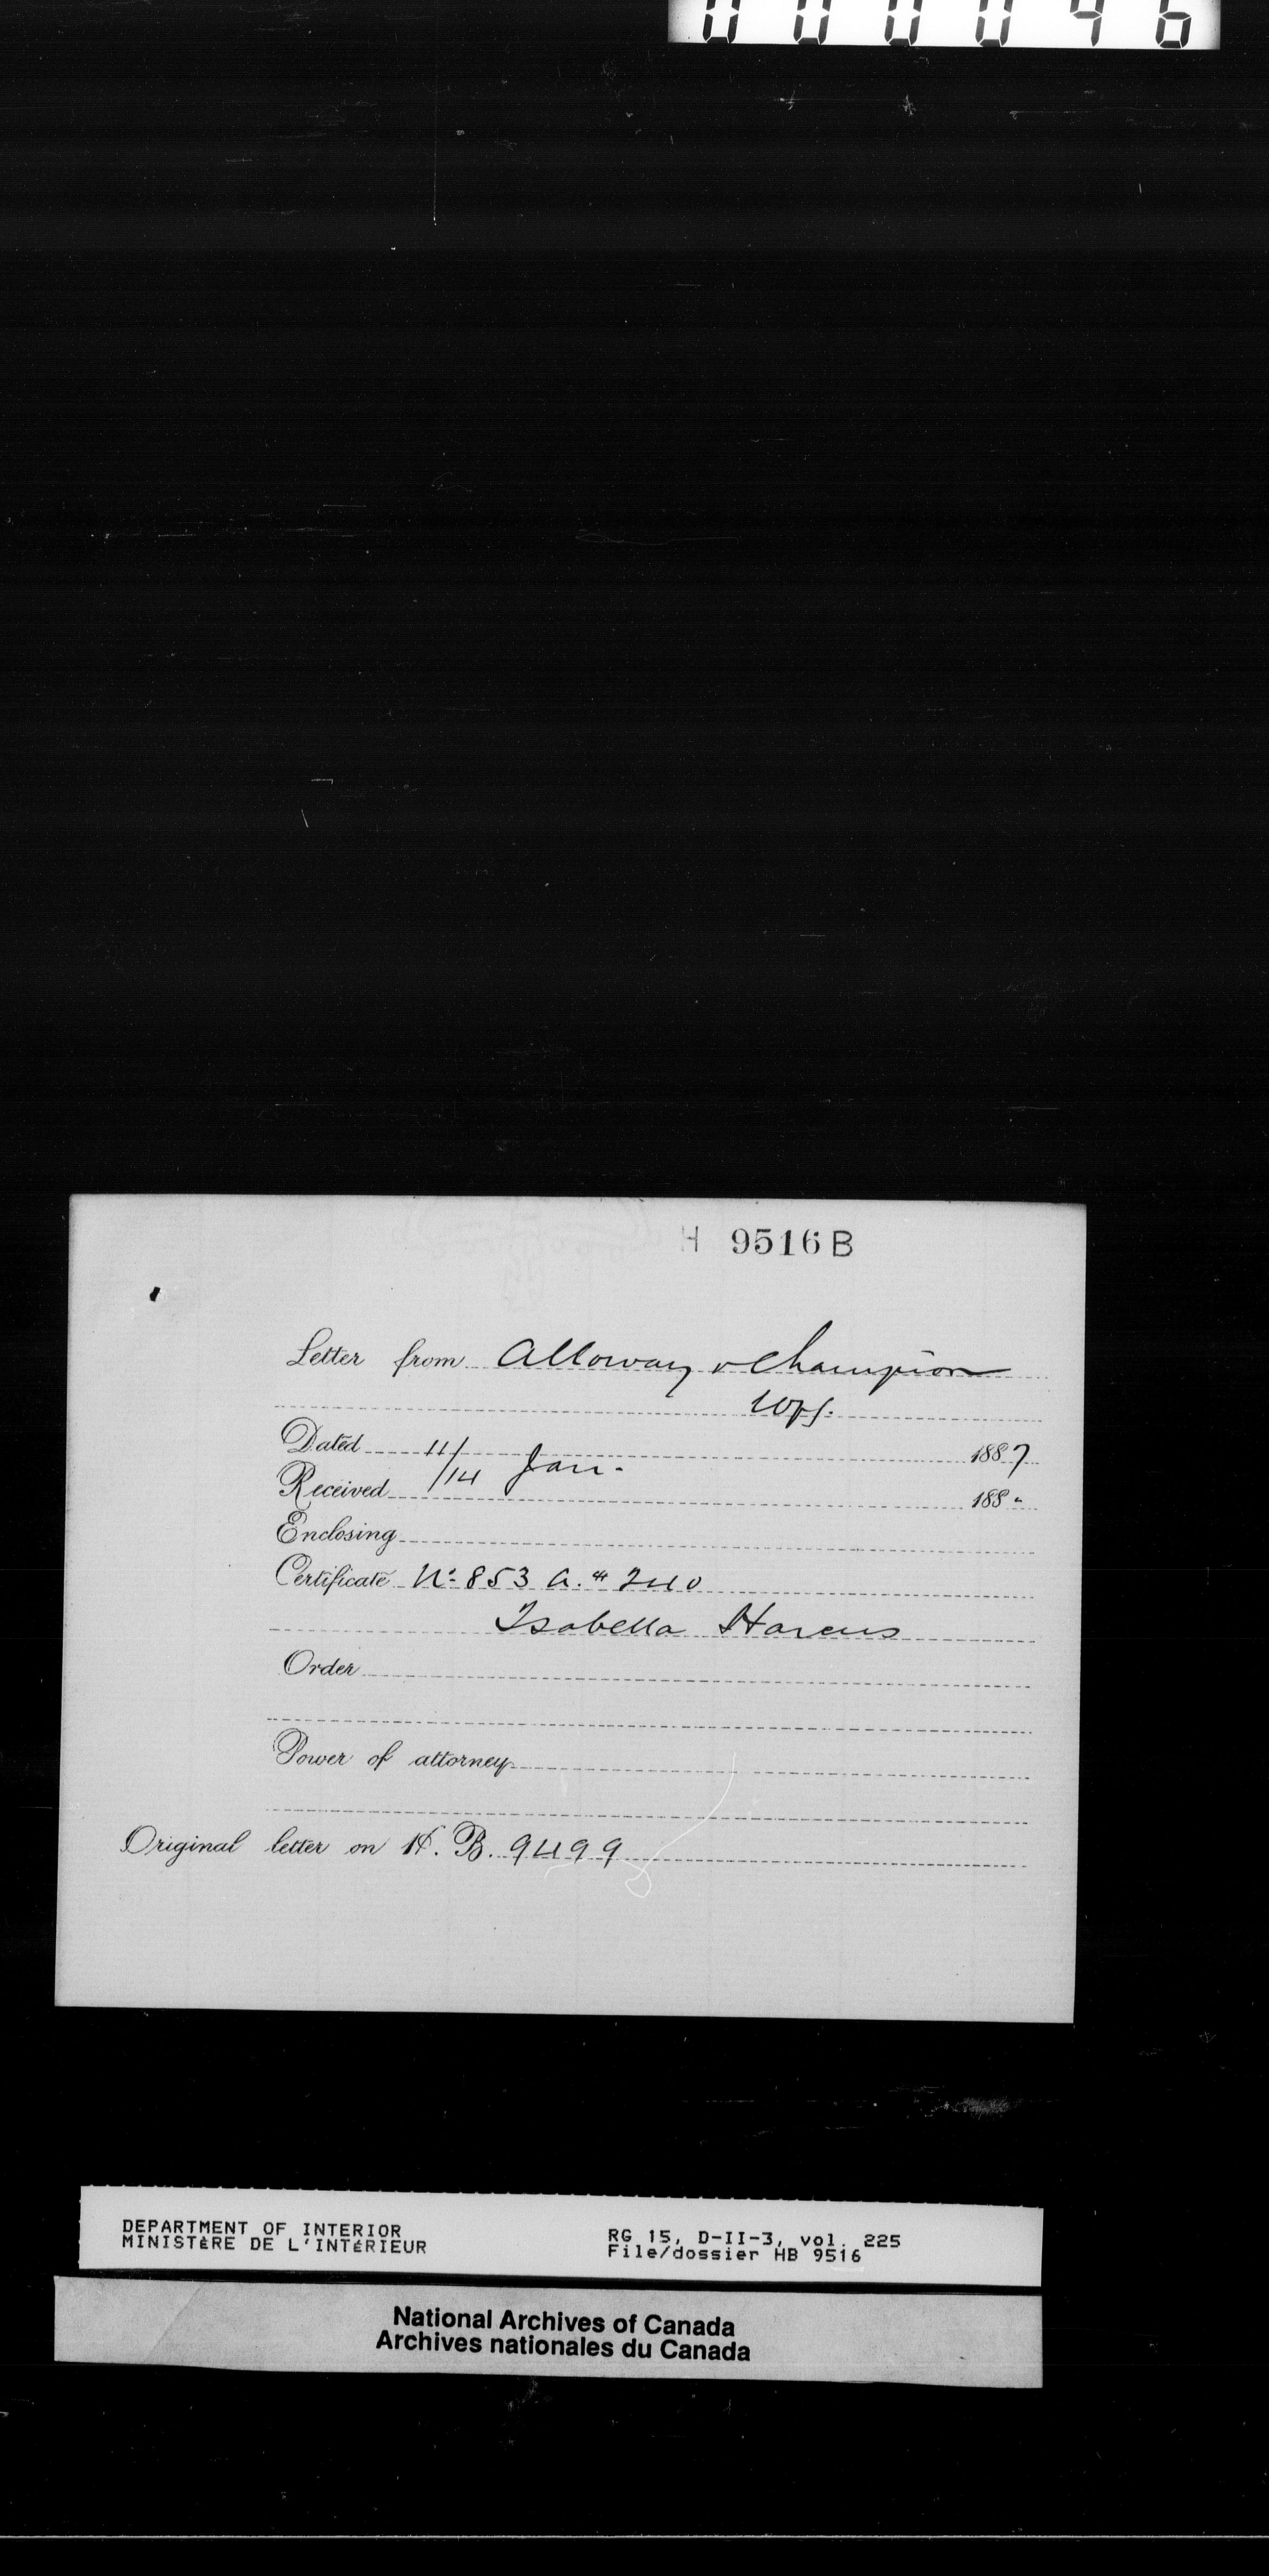 000046
H 9516 B
Letter from Alloway & Champion
Wpg.
Dated 11/ Jan. 1887
Received /14 188 "
Enclosing
Certificate No. 853 A. # 240
Isabella Harcus
Order
Power of attorney
Original letter on H. B. 9499
DEPARTMENT OF INTERIOR
MINISTÈRE DE L'INTÉRIEUR
RG 15, D-II-3, vol. 225
File/dossier HB 9516
National Archives of Canada
Archives nationales du Canada